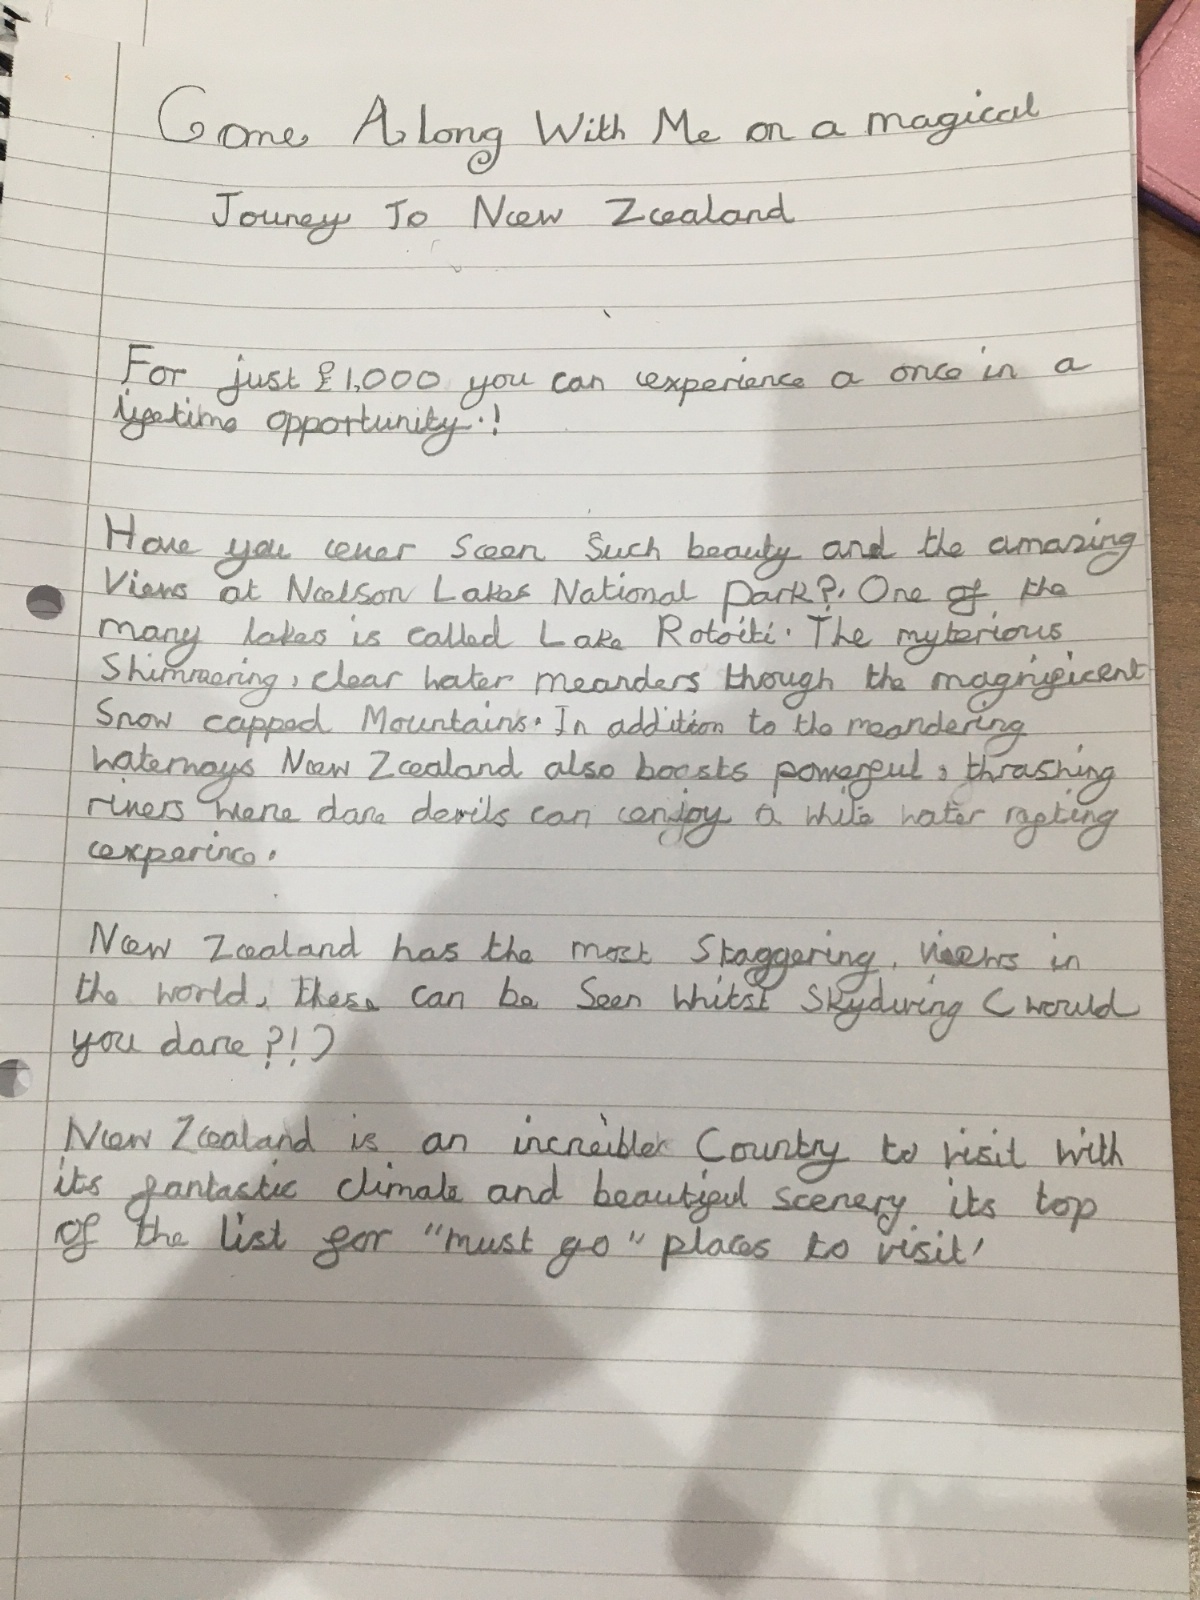 Come Along With Me on a magical
Jouney To New Zealand
For just £1,000 you can experience a once in a
lifetime opportunity.!
Have you ever seen such beauty and the amazing
views at Nelson Lakes National park?. One of the
many lakes is called Lake Rotoiti. The myterious
shimmering, clear water meanders though the magnificent
snow capped Mountains. In addition to the meandering
waterways New Zealand also boasts powerful, thrashing
rivers were dare devils can enjoy a white water rafting
experince.
New Zealand has the most staggering, views in
the world, these can be seen whitst skydiving (would
you dare?!)
New Zealand is an increible country to visit with
its fantastic climate and beautiful scenery its top
of the list for "must go" places to visit'